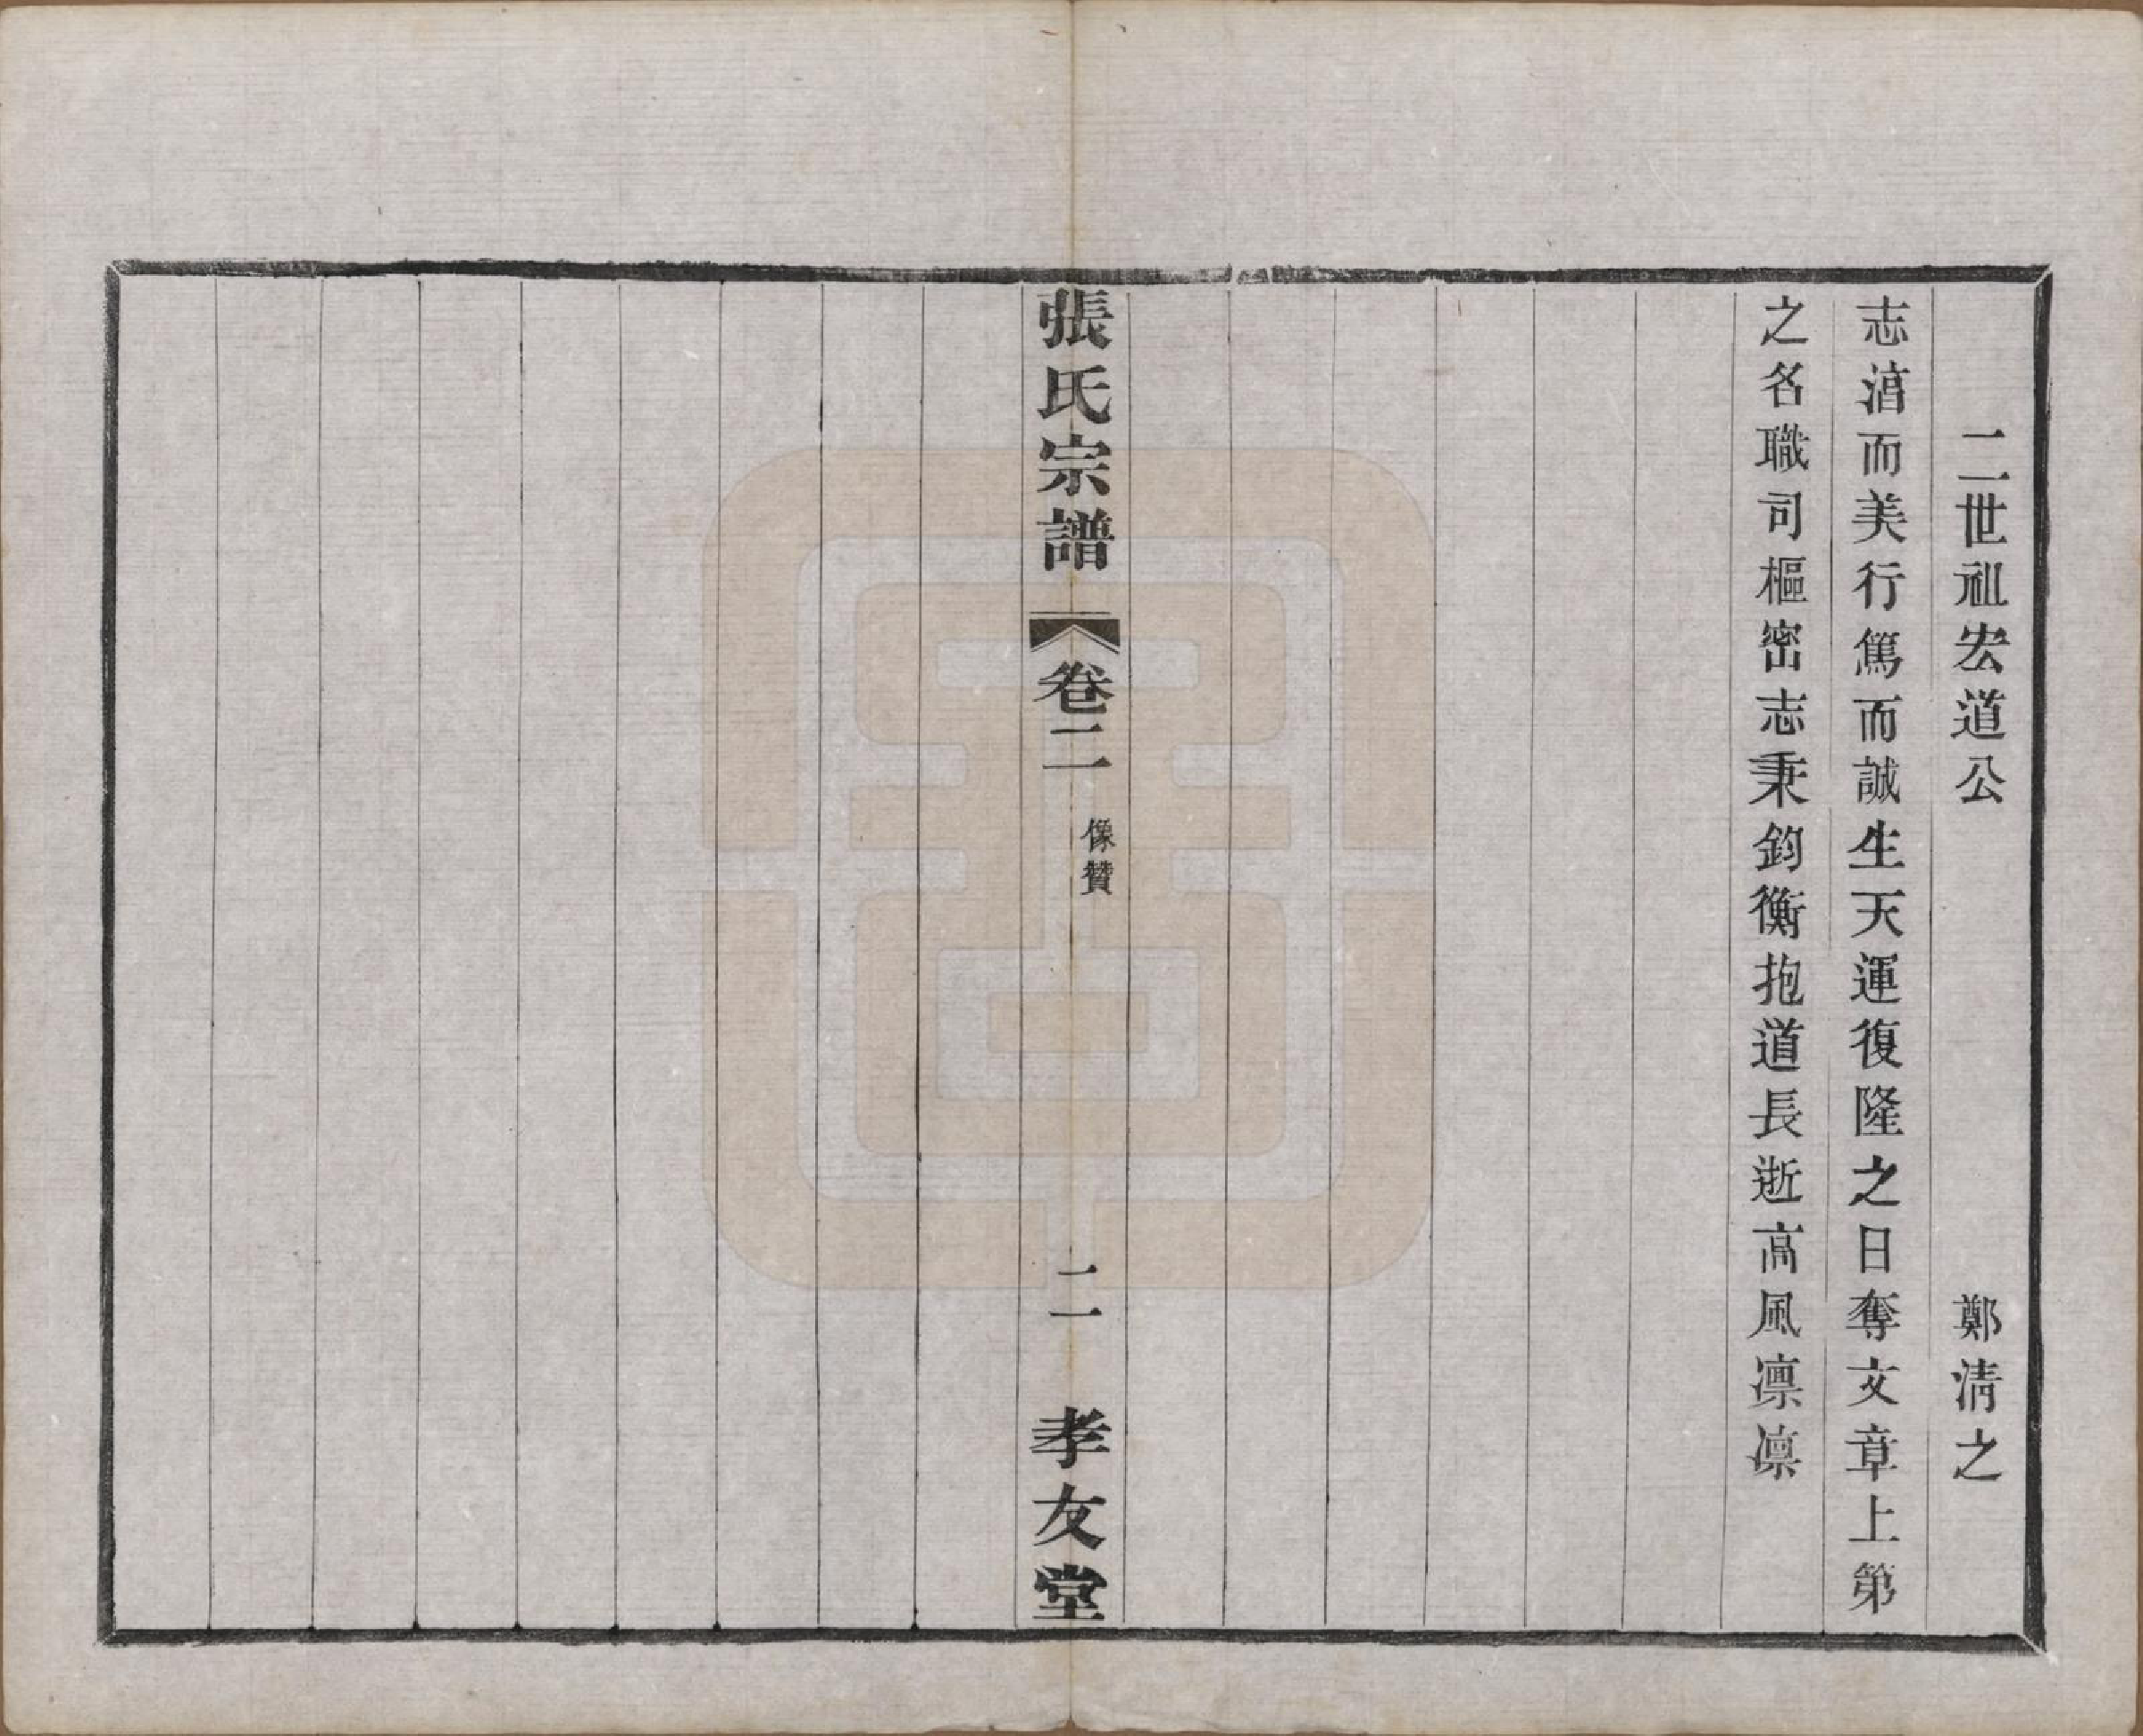 二世祖宏道公　鄭清之
志湻而美行篤而誠生天運復隆之日奪文章上第
之名職司樞密志秉鈞衡抱道長逝高風凛凛
張氏宗譜　卷二　像贊　二　孝友堂